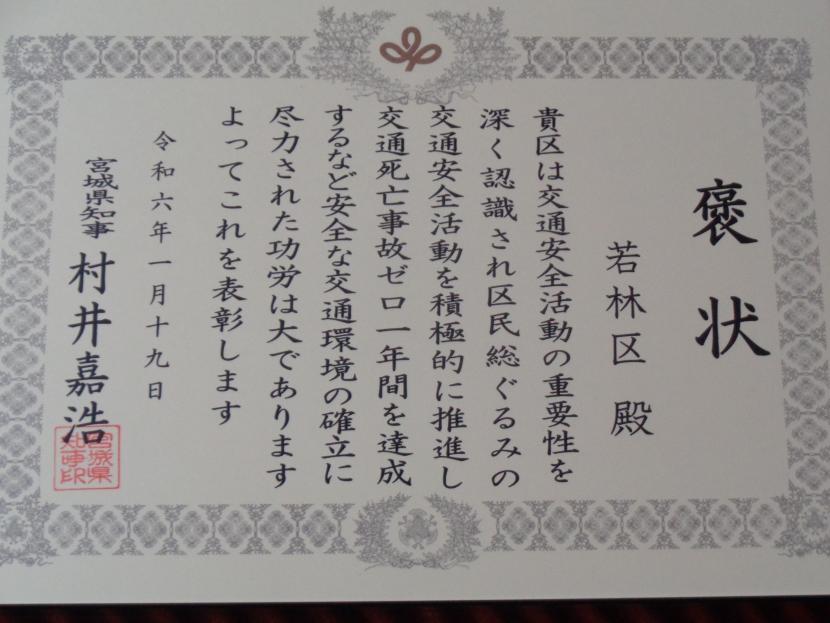 褒状
若林区殿
貴区は交通安全活動の重要性を
深く認識され区民総ぐるみの
交通安全活動を積極的に推進し
交通死亡事故ゼロ一年間を達成
するなど安全な交通環境の確立に
尽力された功労は大であります
よってこれを表彰します
令和六年一月十九日
宮城県知事 村井嘉浩
宮城県
知事印